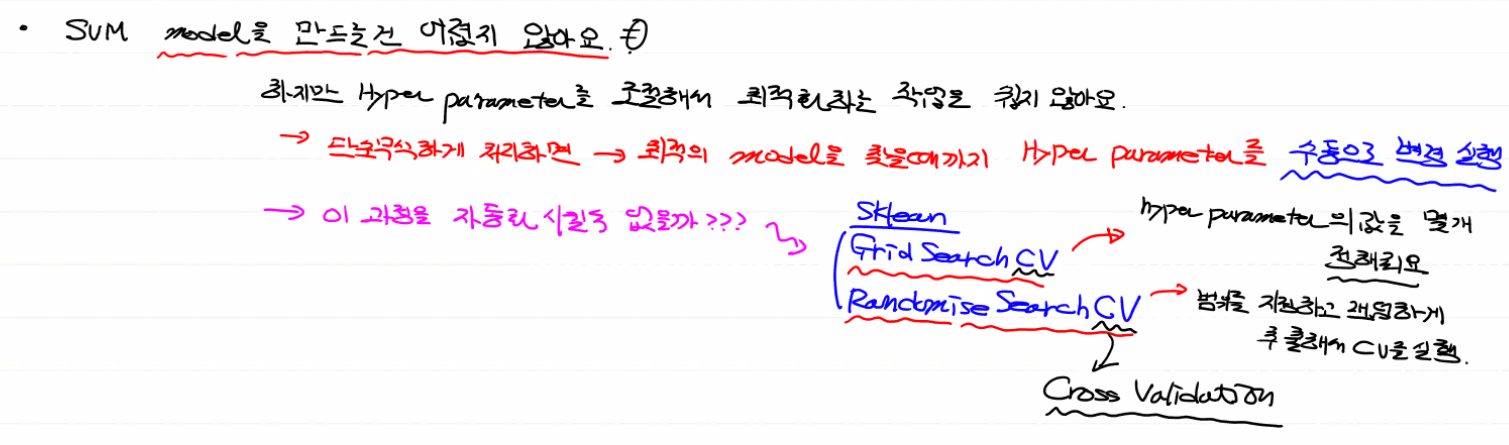 • SVM model을 만드는건 어렵지 않아요.
하지만 Hyper parameter를 조절해서 최적화하는 작업은 쉽지 않아요.
→ 단순무식하게 처리하면 → 최적의 model을 찾을때까지 Hyper parameter를 수동으로 변경 실행
→ 이 과정을 자동화 시킬수 없을까???
Sklean
Grid Search CV → hyper parameter의 값을 몇개 정해줘요
Randomise Search CV → 범위를 지정하고 랜덤하게
추출해서 CV를 실행.
Cross Validation